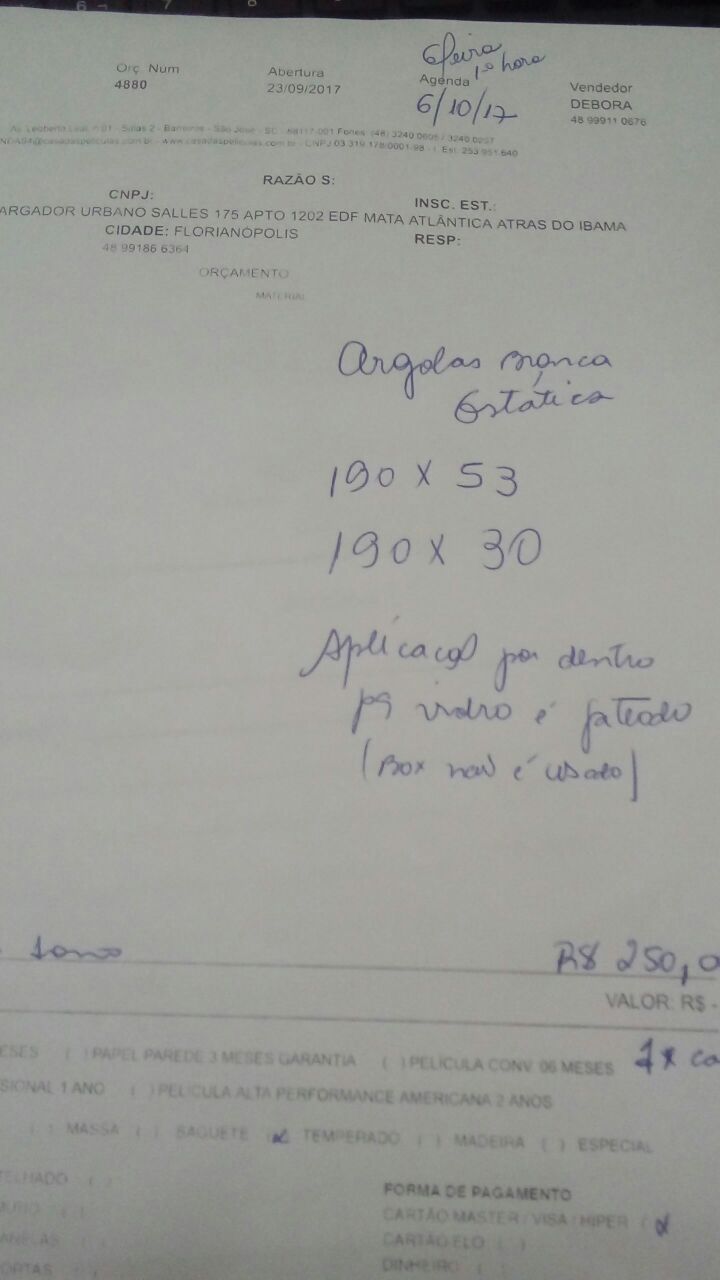 6feira
1ª hora
Orç. Num
4880
Abertura
23/09/2017
Agenda
6/10/17
Vendedor
DEBORA
48 99911 0676
São José - SC - 88117-001 Fones: (48) 3240 0605 / 3240 0257
www.casadaspeliculas.com.br - CNPJ 03.319.178/0001-98 - I. Est. 253.951.640
RAZÃO S:
CNPJ:
INSC. EST.:
ARGADOR URBANO SALLES 175 APTO 1202 EDF MATA ATLÂNTICA ATRAS DO IBAMA
CIDADE: FLORIANÓPOLIS
RESP:
48 99186 6364
ORÇAMENTO
MATERIAL
Argolas Branca
Estática
190 X 53
190 X 30
Aplicação por dentro
pq vidro é jateado
(Box não é usado)
1 ano
R$ 250,0
VALOR: R$ -
ESES ( ) PAPEL PAREDE 3 MESES GARANTIA ( ) PELÍCULA CONV. 06 MESES
1x ca
SIONAL 1 ANO ( ) PELICULA ALTA PERFORMANCE AMERICANA 2 ANOS
( ) MASSA ( ) BAGUETE (x) TEMPERADO ( ) MADEIRA ( ) ESPECIAL
TELHADO ( )
MURO ( )
ANELAS ( )
ORTAS ( )
FORMA DE PAGAMENTO
CARTÃO MASTER / VISA / HIPER (x
CARTÃO ELO ( )
DINHEIRO (